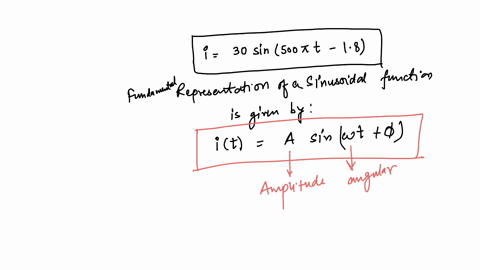 i = 30 sin (500πt - 1.8)
Fundamental Representation of a Sinusoidal function
is given by:
i(t) = A sin(ωt + ϕ)
Amplitude angular